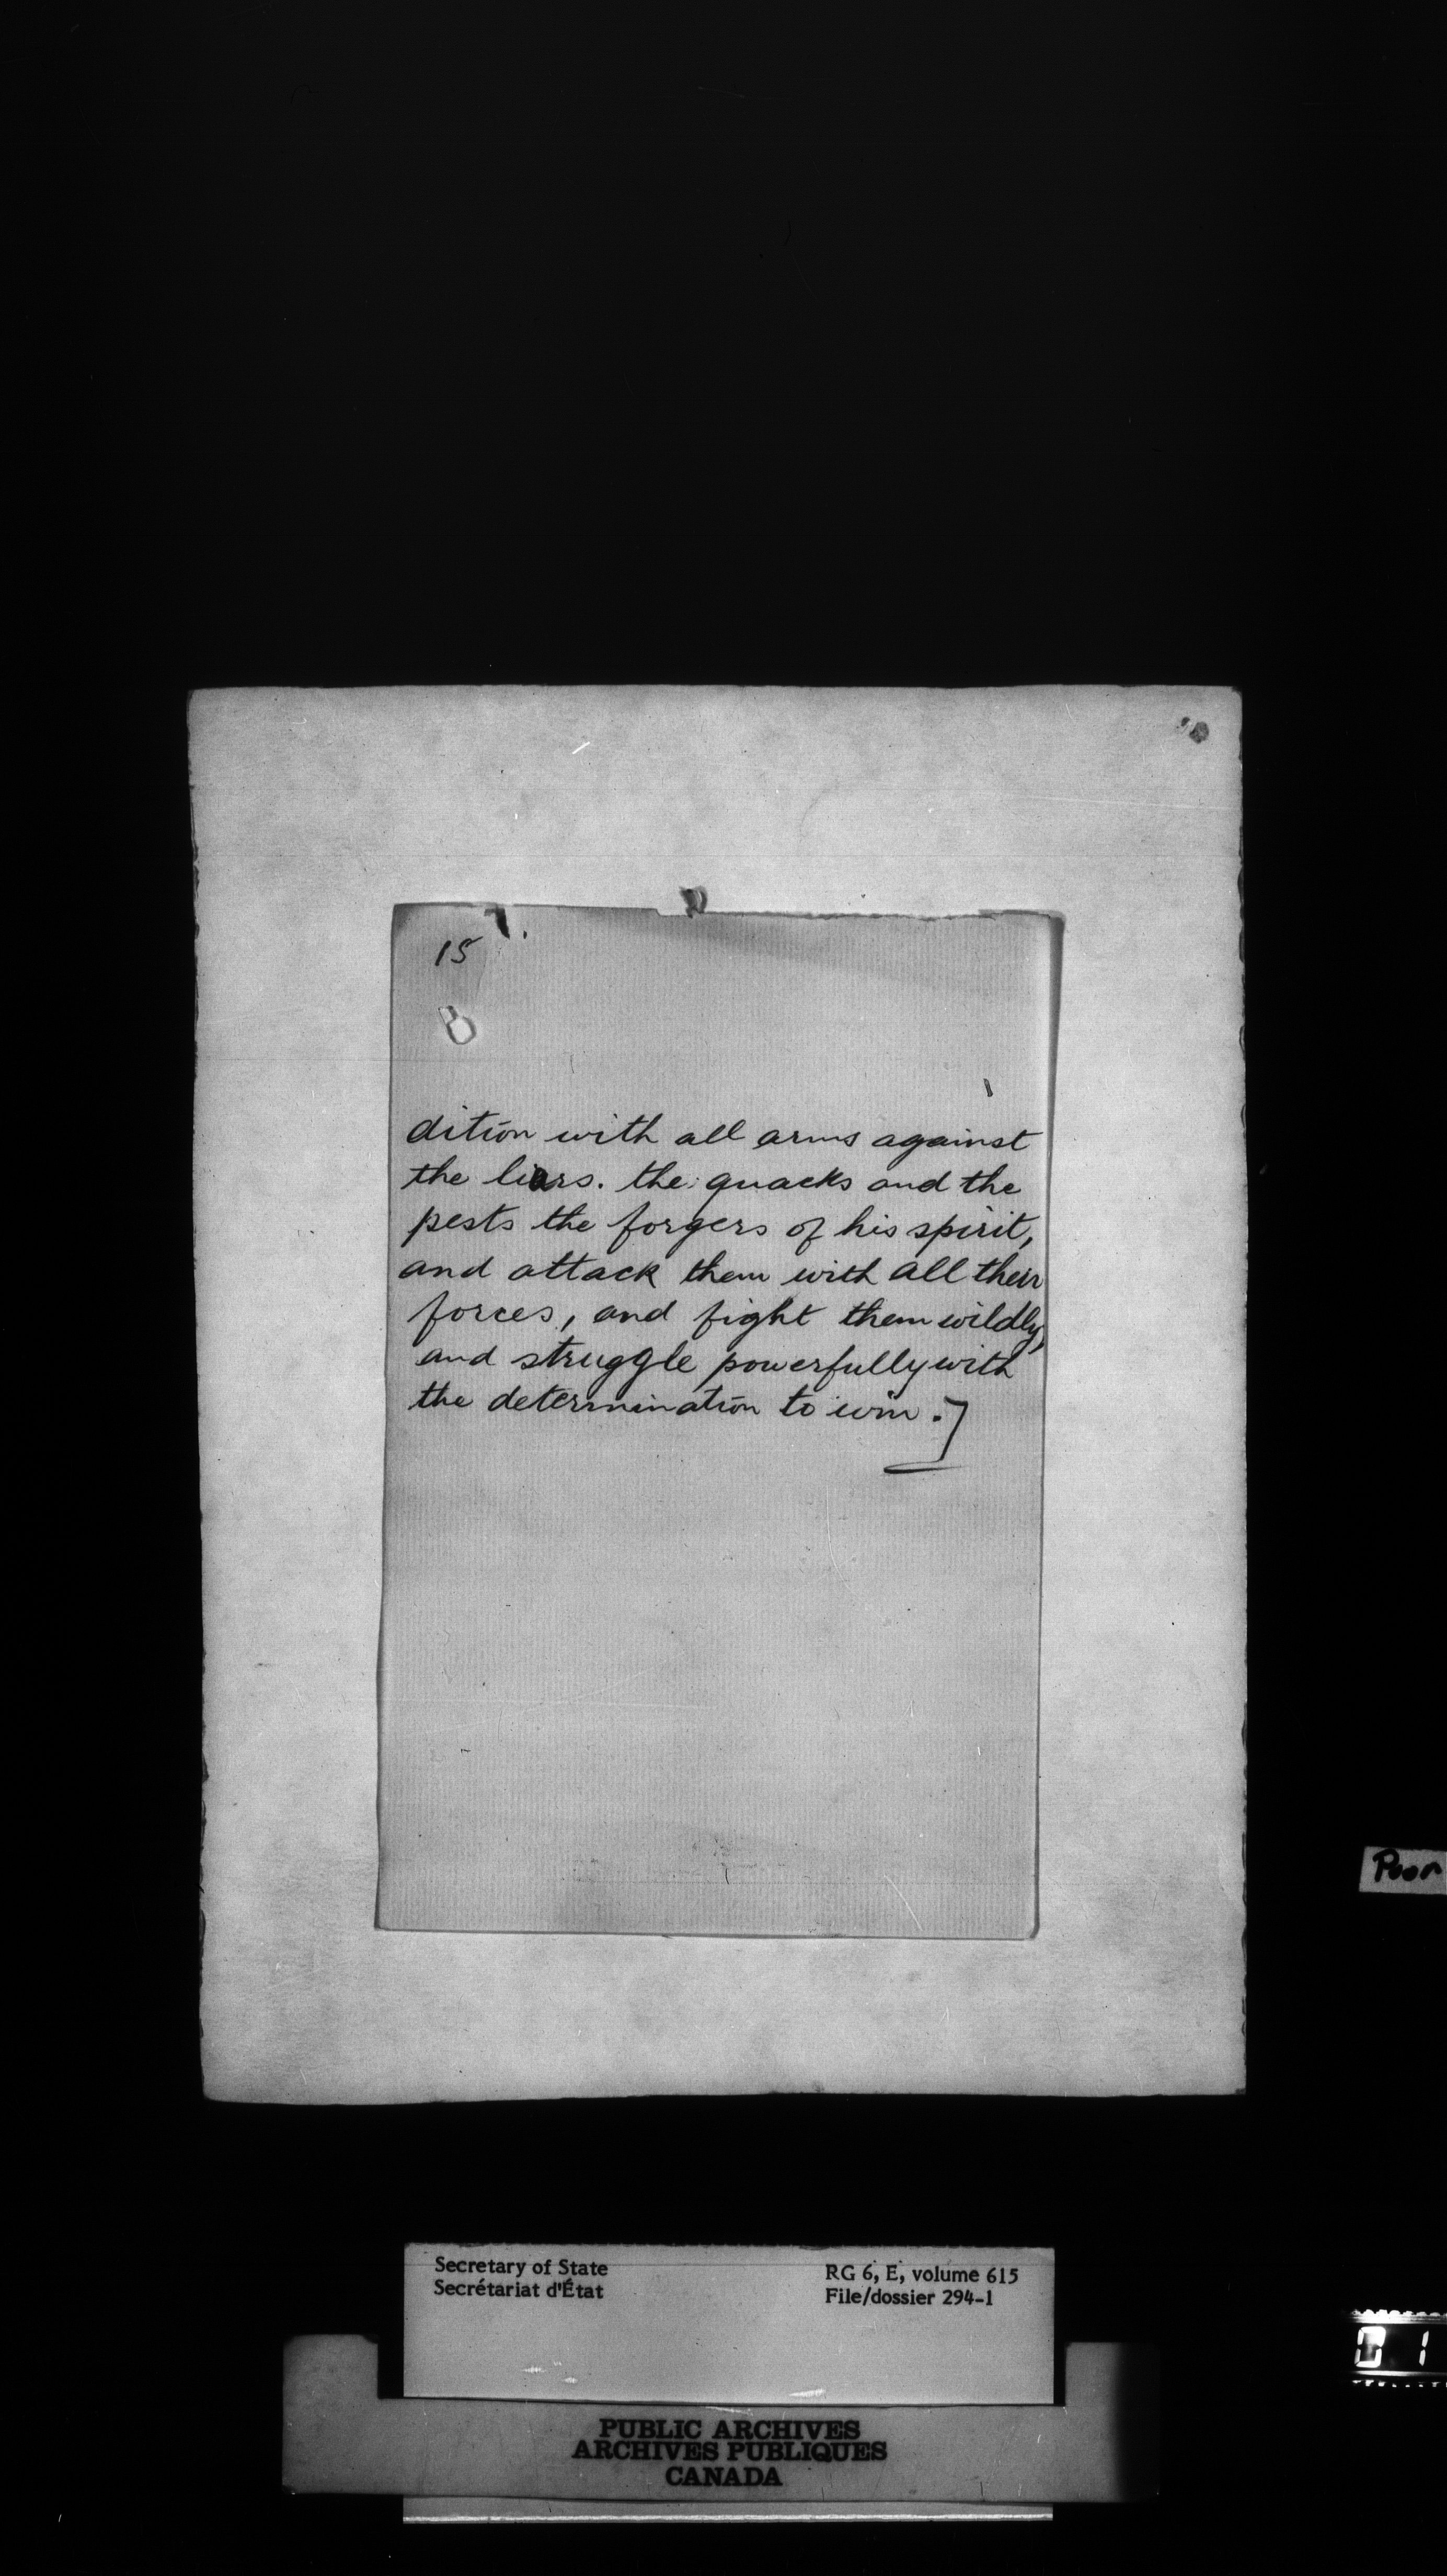 15
dition with all arms against
the liars. the quacks and the
pests the forgers of his spirit,
and attack them with all their
forces, and fight them wildly,
and struggle powerfully with
the determination to win.]
Poor
Secretary of State
Secrétariat d'État
RG 6, E, volume 615
File/dossier 294-1
01
PUBLIC ARCHIVES
ARCHIVES PUBLIQUES
CANADA